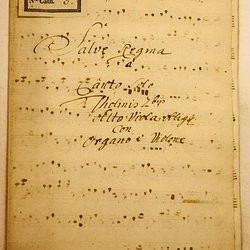 No Cath. 5.
Salve Regina
a
Canto solo
Violinis 2bus
Alto Viola oblig:
con
Organo è Violone